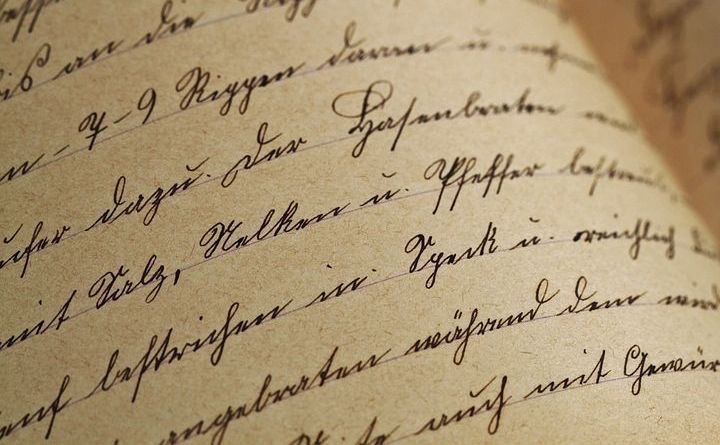 bis an die Ripp
n - 7-9 Rippen daran u.
ufer dazu. Der Hasenbraten
mit Salz, Nelken u. Pfeffer bestreut,
enf bestrichen in. Speck u. reichlich
angebraten während dem wird
te auch mit Gewür